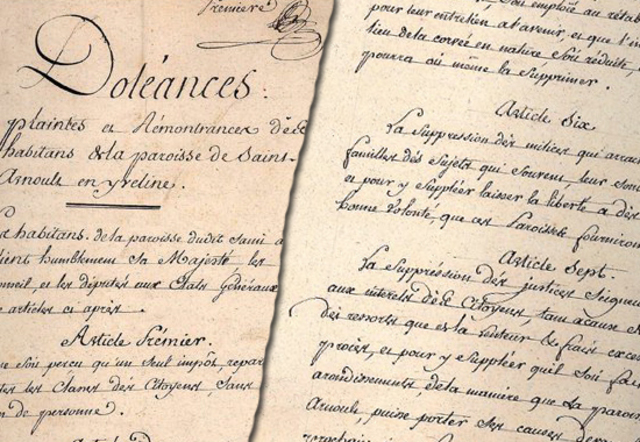 Premiere
Doléances.
plaintes et Rémontrances des
habitans de la paroisse de Saint-
Arnoult en yveline.
habitans de la paroisse dudit Saint a
humblement Sa Majesté les
et les députés aux Etats Généraux
articles ci après.
Article Prémier.
Soit perçu qu'un Seul impôt, repar
les Classes des Citoyens, Sans
de personne.
Soit emploié au rétab
pour leur entretien a l'avenir, et que l'im
lieu de la corvée en nature, Soit réduite,
pourra ou même la Supprimer.
Article Six
La Suppression des milices qui arrac
familles des Sujets qui Souvent, leur Sont
et pour y Suppléer laisser la liberté a des
bonne volonté, que ces Paroisses fourniron
Article Sept.
La Suppression des justices Seigneu
aux interets des Citoyens, tant a cause de
des ressorts que de la lenteur & frais exces
procès, et pour y Suppléer qu'il Soit fai
arondissements, de la maniere que la paroi
Arnoult, puisse porter Ses causes